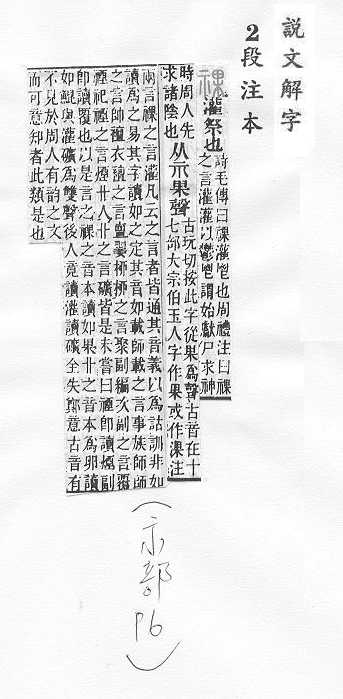 說文解字
2段注本
祼 灌祭也 詩毛傳曰祼灌鬯也周禮注曰祼
之言灌灌以鬱鬯謂始獻尸求神
時周人先
求諸陰也
从示果聲 古玩切按此字從果爲聲古音在十
七部大宗伯玉人字作果或作淉注
兩言祼之言灌凡云之言者皆通其音義以爲詁訓非如
讀爲之易其字讀如之定其音如載師載之言事族師師
之言帥襢衣襢之言亶翣柳柳之言聚副編次副之言覆
禋祀禋之言煙丱人丱之言礦皆是未嘗曰禋卽讀煙副
卽讀覆也以是言之祼之音本讀如果丱之音本爲卵讀
如鯤與灌礦爲雙聲後人竟讀灌讀礦全失鄭意古音有
不見於周人有韵之文
而可意知者此類是也
(示部P6)